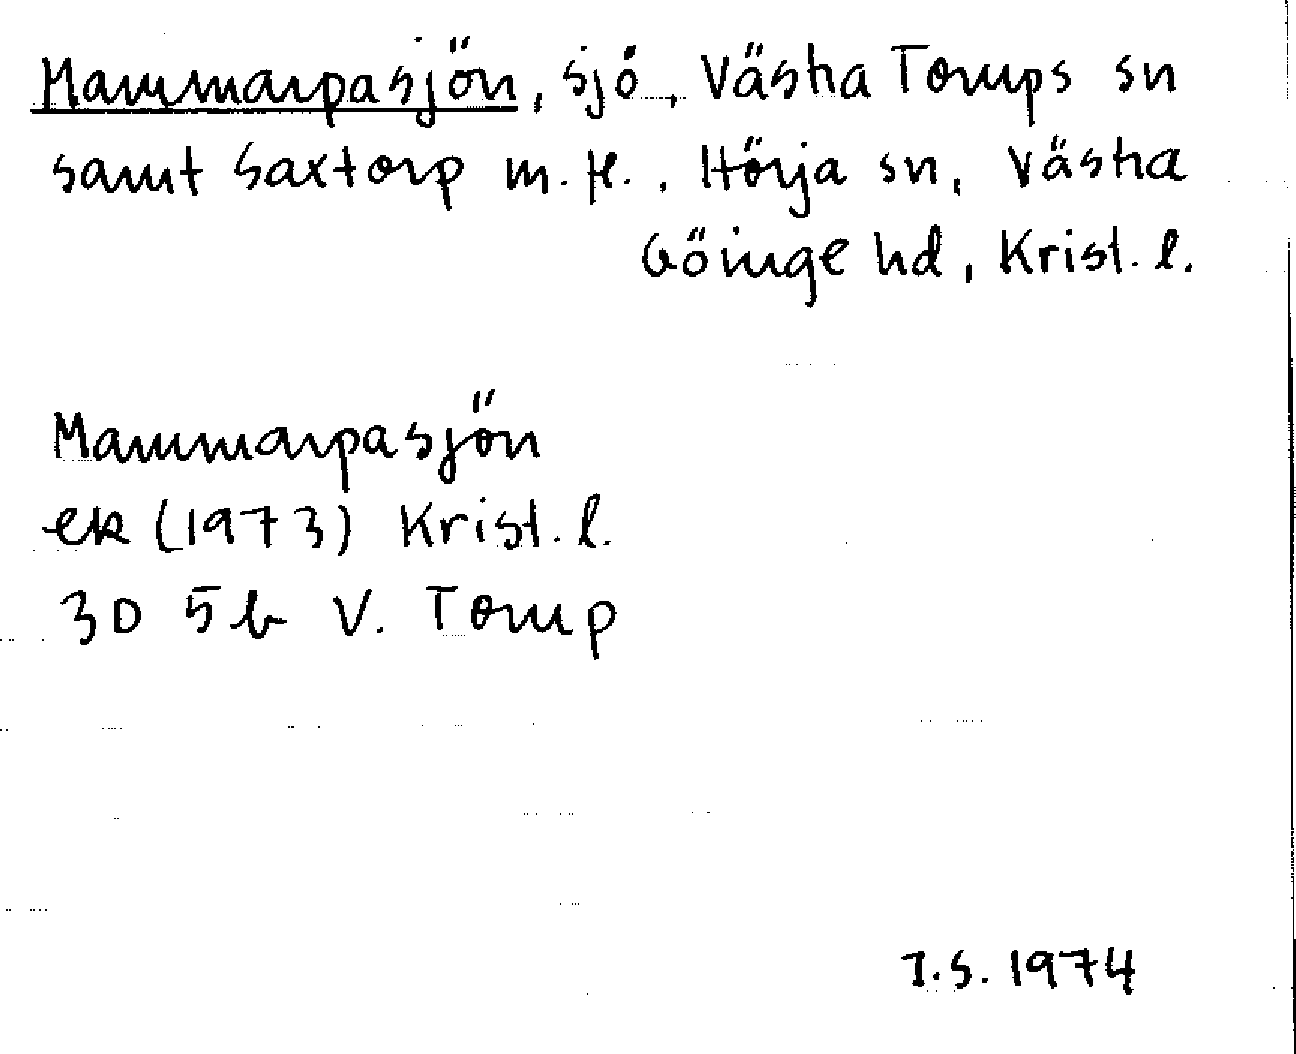 Mammarpasjön, sjö, Västra Torups sn
samt Saxtorp m.fl., Hörja sn, Västra
Göinge hd, Krist. l.
Mammarpasjön
ek (1973) Krist. l.
3D 5b V. Torup
I.S. 1974